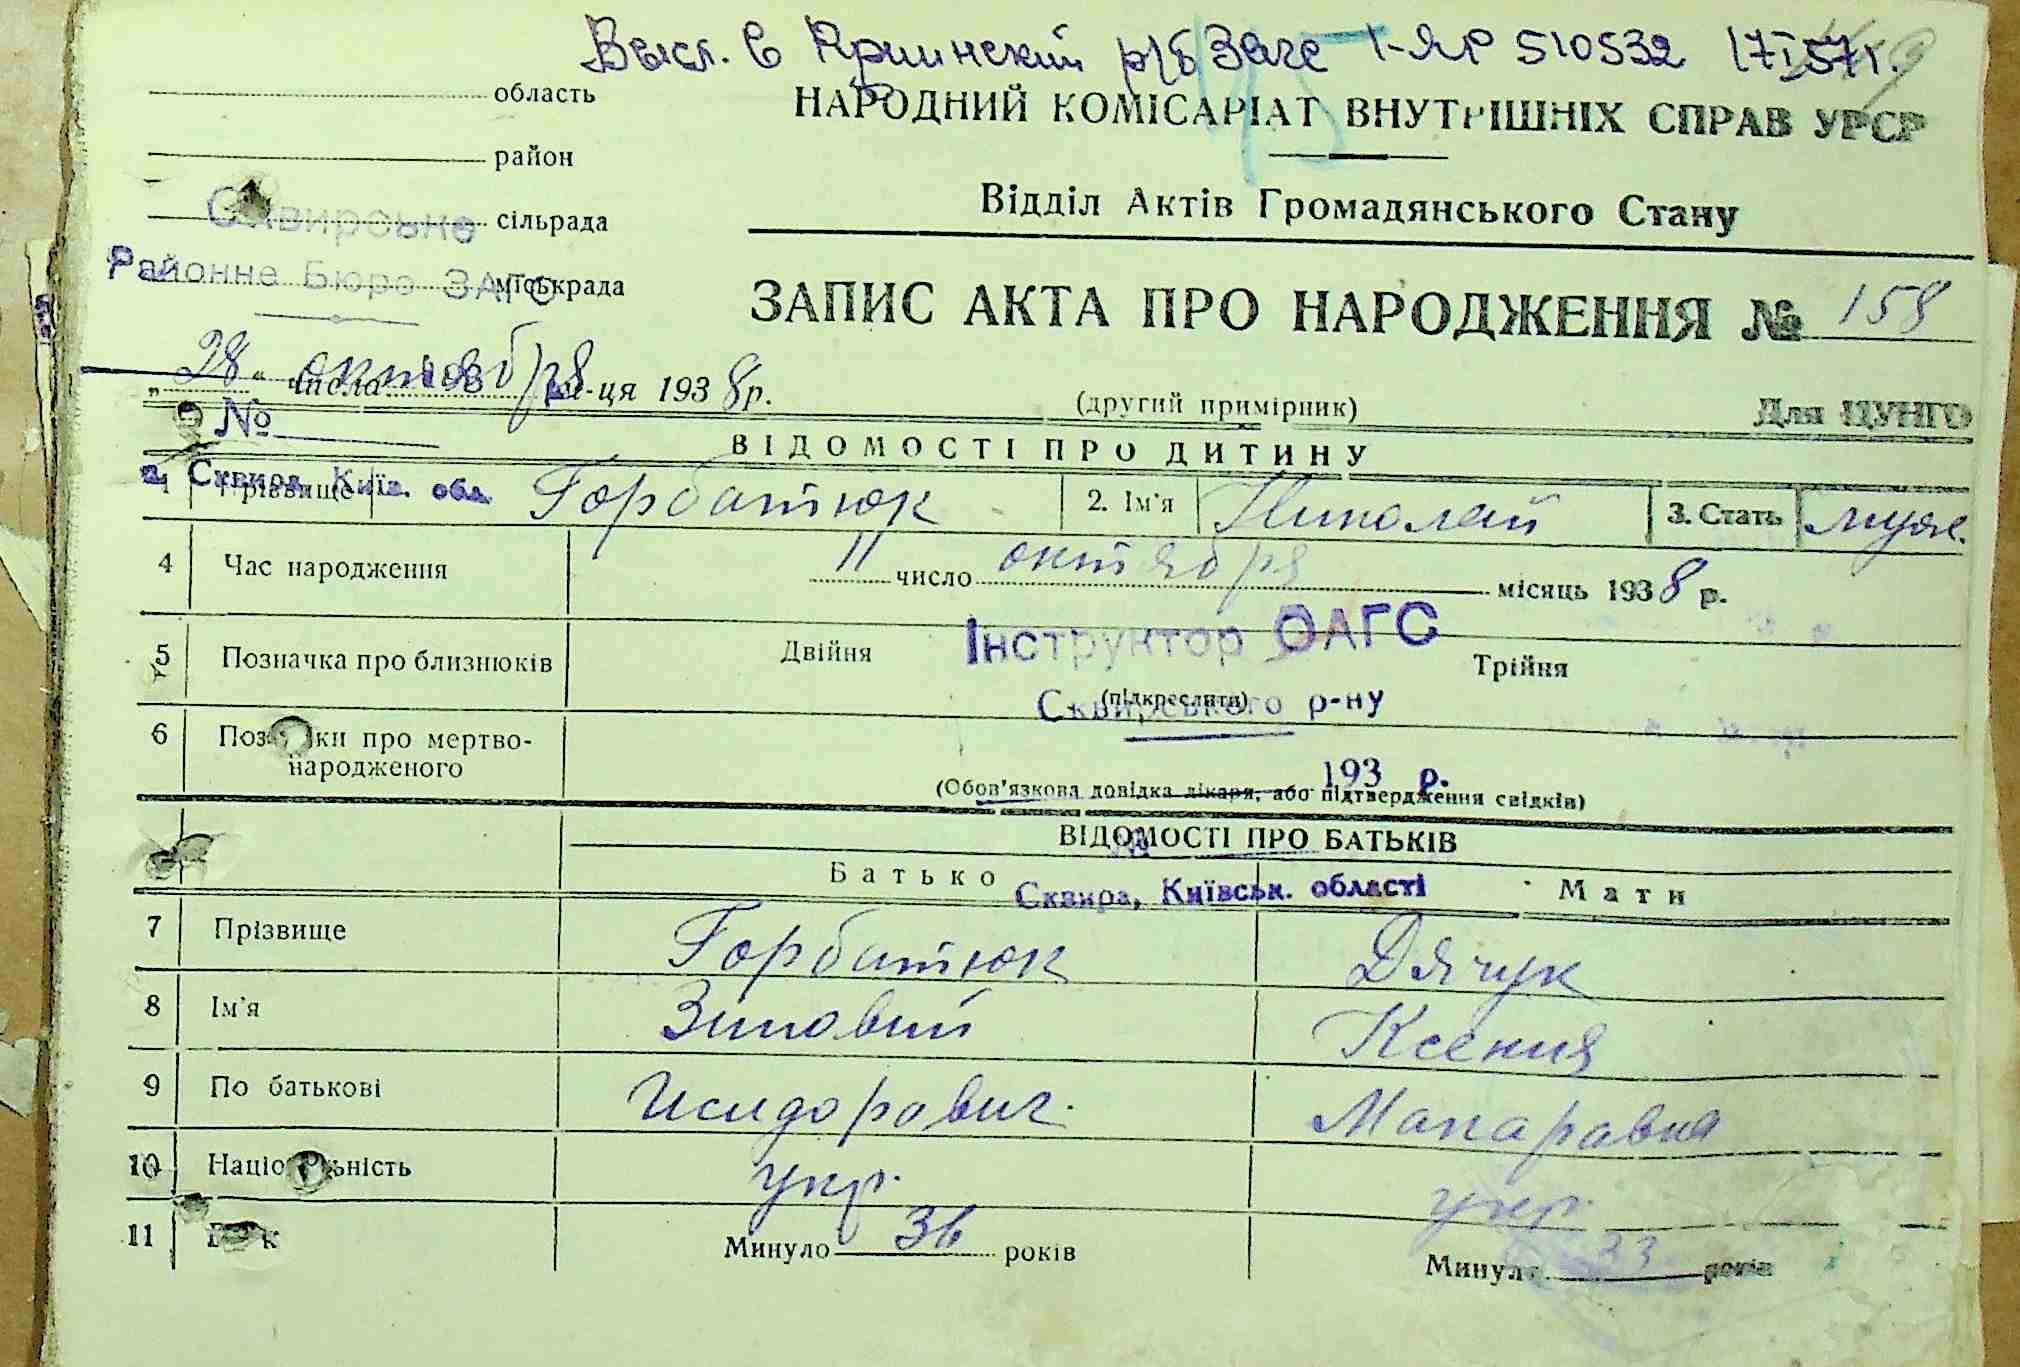 Высл. в р/б Загс 1-ЯР 510532 17 I 57 г.
область
НАРОДНИЙ КОМІСАРІАТ ВНУТРІШНІХ СПРАВ УРСР
район
Відділ Актів Громадянського Стану
Сквирське сільрада
Районне Бюро ЗАГС міськрада
ЗАПИС АКТА ПРО НАРОДЖЕННЯ № 158
„28“ числа октября м-ця 1938 р.
193
(другий примірник)
Для ЦУНГО
№
ВІДОМОСТІ ПРО ДИТИНУ
м. Сквира, Київ. обл.
1 Прізвище Горбатюк 2. Ім'я Николай 3. Стать муж.
4 Час народження 11 число октября місяць 1938 р.
Інструктор ОАГС
5 Позначка про близнюків Двійня Трійня
(підкреслити)
Сквирського р-ну
6 Позначки про мертво-
народженого
193 р.
(Обов'язкова довідка лікаря, або підтвердження свідків)
ВІДОМОСТІ ПРО БАТЬКІВ
Батько Мати
Сквира, Київськ. області
7 Прізвище Горбатюк Дячук
8 Ім'я Зиновий Ксения
9 По батькові Исидорович Макаровна
10 Національність укр. укр.
11 Вік Минуло 36 років Минуло 33 років